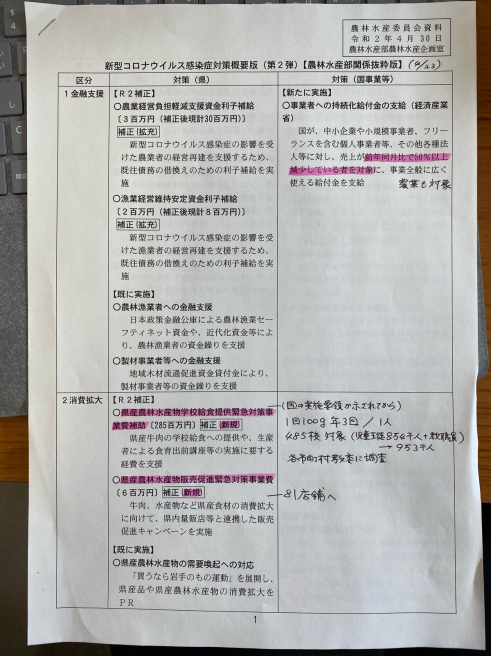 農林水産委員会資料
令和2年4月30日
農林水産部農林水産企画室
新型コロナウイルス感染症対策概要版（第2弾）【農林水産部関係抜粋版】(4/23)
区分
対策（県）
対策（国事業等）
1金融支援
【R2補正】
〇農業経営負担軽減支援資金利子補給
〔3百万円（補正後現計30百万円）〕
補正(拡充)
新型コロナウイルス感染症の影響を受
けた農業者の経営再建を支援するため、
既往債務の借換えのための利子補給を実
施
〇漁業経営維持安定資金利子補給
〔2百万円（補正後現計8百万円）〕
補正(拡充)
新型コロナウイルス感染症の影響を受
けた漁業者の経営再建を支援するため、
既往債務の借換えのための利子補給を実
施
【既に実施】
〇農林漁業者への金融支援
日本政策金融公庫による農林漁業セー
フティネット資金や、近代化資金等によ
り、農林漁業者の資金繰りを支援
〇製材事業者等への金融支援
地域木材流通促進資金貸付により、
製材事業者等の資金繰りを支援
【新たに実施】
〇事業者への持続化給付金の支給（経済産業
省）
国が、中小企業や小規模事業者、フリー
ランスを含む個人事業者等、その他各種法
人等に対し、売上が前年同月比で50％以上
減少している者を対象に、事業全般に広く
使える給付金を支給
農業も対象
2消費拡大
【R2補正】
〇県産農林水産物学校給食提供緊急対策事
業費補助〔285百万円〕補正(新規)
県産牛肉の学校給食への提供や、生産
者による食育出前講座等の実施に要する
経費を支援
〇県産農林水産物販売促進緊急対策事業費
〔6百万円〕補正(新規)
牛肉、水産物など県産食材の消費拡大
に向けて、県内量販店等と連携した販売
促進キャンペーンを実施
【既に実施】
〇県産農林水産物の需要喚起への対応
「買うなら岩手のもの運動」を展開し、
県産品や県産農林水産物の消費拡大を
PR
(国の実施要領が示されてから)
1回100g 年3回／1人
485校 対象
→953千人
各市町村教委に調査
81店舗へ
1